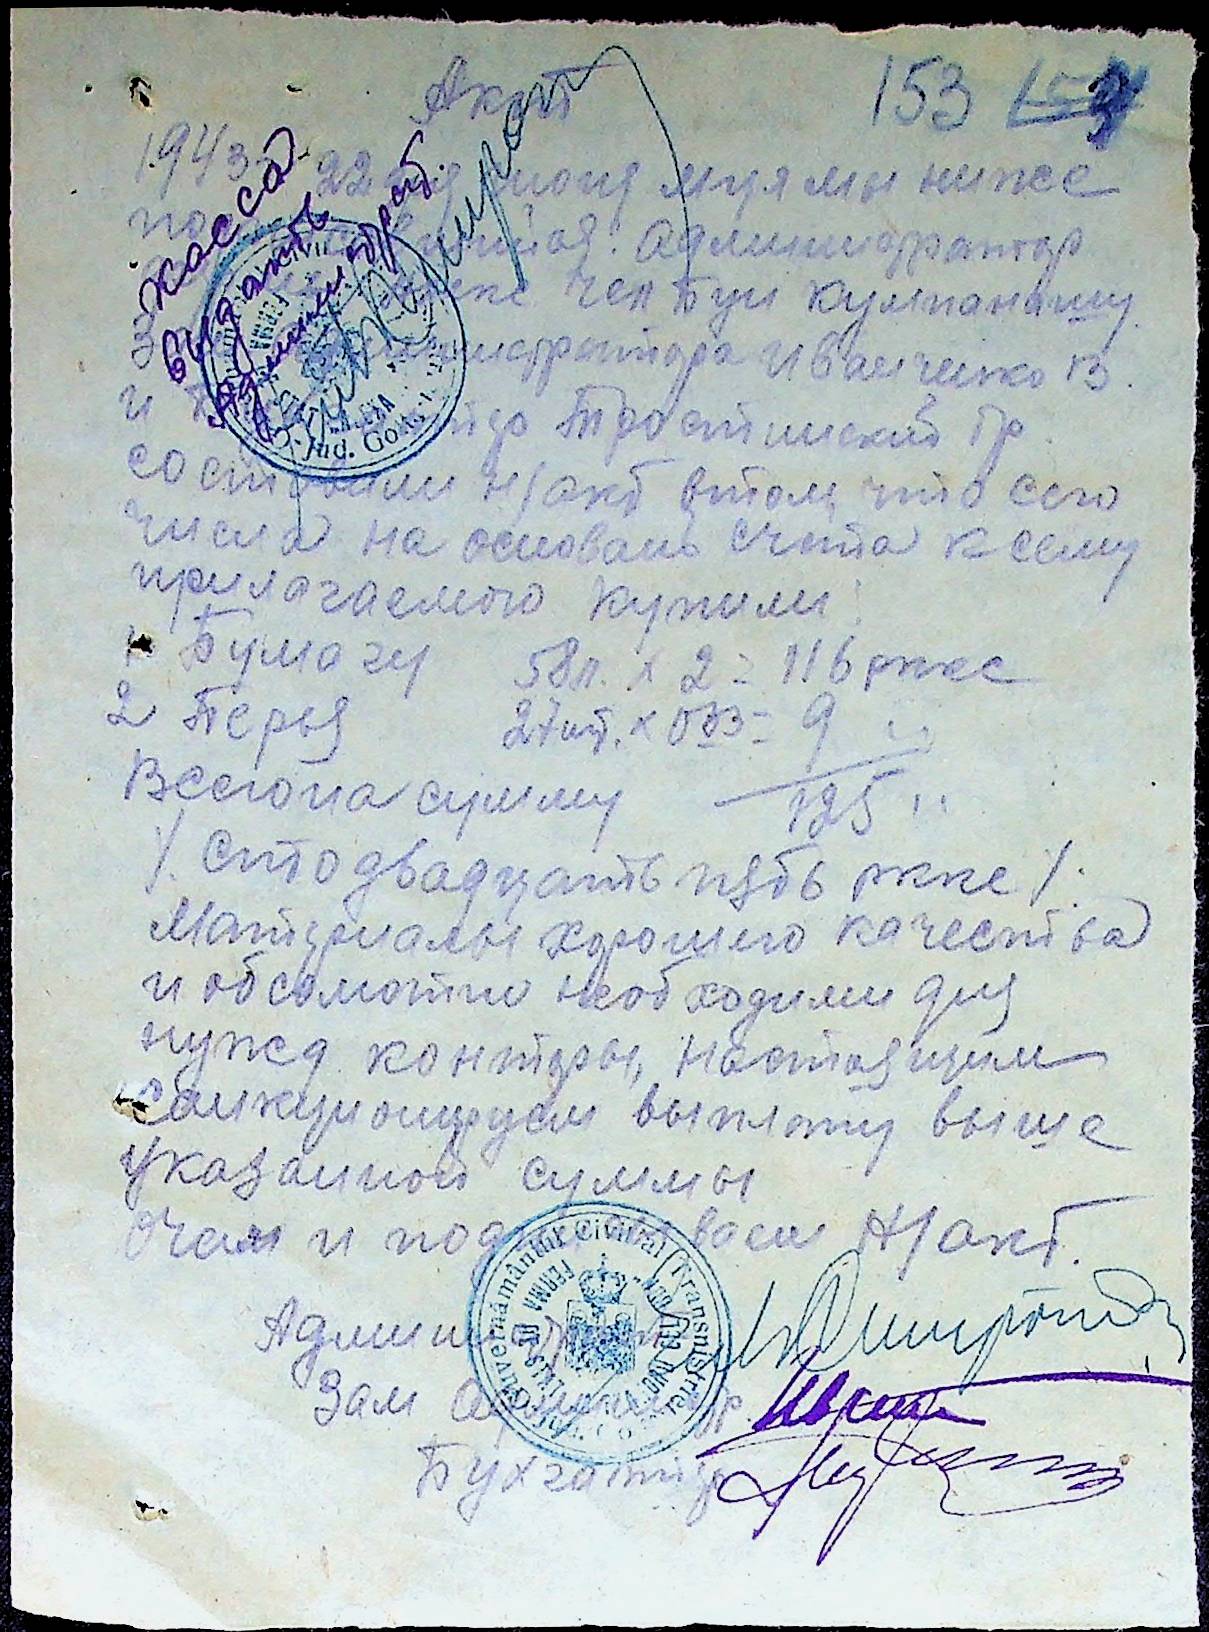 153
Акт
1943 г. 22 дня июня м-ця мы ниже
Администратор
Чеп Буи Кумпанашу
Иванченко В.
и Тростинский Гр.
составили н/акт втом, что сего
числа на основань счета к сему
прилагаемого купили:
1 Бумагу 58л. х 2 = 116 ркке
2 Перья 27 шт. х 033 = 9 "
Всегона сумму 125 "
/. Сто двадцать пять ркке /.
Материалы хорошего качества
и обсомотно необходими для
нужд конторы, настоящим
санкционируем выплату выше
указанной суммы
Очем и подписываем н/акт.
Администратор
Зам админ-тор
Бухгалтер
касса
выдать
Guvernământul Civil al Transnistriei
FERMA DE STAT
Jud. Golta